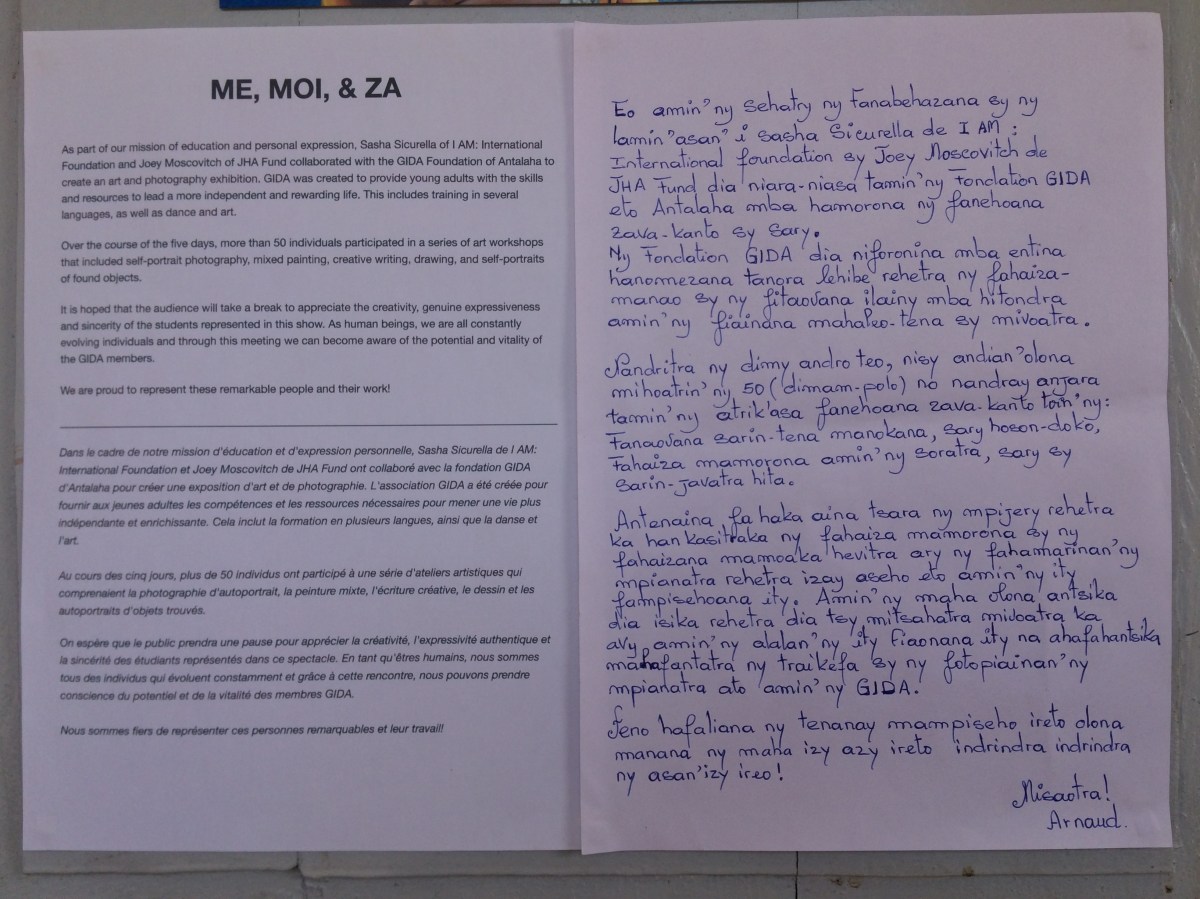 ME, MOI, & ZA
As part of our mission of education and personal expression, Sasha Sicurella of I AM: International
Foundation and Joey Moscovitch of JHA Fund collaborated with the GIDA Foundation of Antalaha to
create an art and photography exhibition. GIDA was created to provide young adults with the skills
and resources to lead a more independent and rewarding life. This includes training in several
languages, as well as dance and art.
Over the course of the five days, more than 50 individuals participated in a series of art workshops
that included self-portrait photography, mixed painting, creative writing, drawing, and self-portraits
of found objects.
It is hoped that the audience will take a break to appreciate the creativity, genuine expressiveness
and sincerity of the students represented in this show. As human beings, we are all constantly
evolving individuals and through this meeting we can become aware of the potential and vitality of
the GIDA members.
We are proud to represent these remarkable people and their work!
Dans le cadre de notre mission d'éducation et d'expression personnelle, Sasha Sicurella de I AM:
International Foundation et Joey Moscovitch de JHA Fund ont collaboré avec la fondation GIDA
d'Antalaha pour créer une exposition d'art et de photographie. L'association GIDA a été créée pour
fournir aux jeunes adultes les compétences et les ressources nécessaires pour mener une vie plus
indépendante et enrichissante. Cela inclut la formation en plusieurs langues, ainsi que la danse et
l'art.
Au cours des cinq jours, plus de 50 individus ont participé à une série d'ateliers artistiques qui
comprenaient la photographie d'autoportrait, la peinture mixte, l'écriture créative, le dessin et les
autoportraits d'objets trouvés.
On espère que le public prendra une pause pour apprécier la créativité, l'expressivité authentique et
la sincérité des étudiants représentés dans ce spectacle. En tant qu'êtres humains, nous sommes
tous des individus qui évoluent constamment et grâce à cette rencontre, nous pouvons prendre
conscience du potentiel et de la vitalité des membres GIDA.
Nous sommes fiers de représenter ces personnes remarquables et leur travail!
Eo amin'ny sehatry ny fanabehazana sy ny
lamin'asan' i sasha Sicurella de I AM :
International foundation sy Joey Moscovitch de
JHA Fund dia niara-niasa tamin'ny Fondation GIDA
eto Antalaha mba hamorona ny fanehoana
zava-kanto sy sary.
Ny Fondation GIDA dia niforonina mba entina
hanomezana tanora lehibe rehetra ny fahaiza-
manao sy ny fitaovana ilainy mba hitondra
amin'ny fiainana mahaleo-tena sy mivoatra.
Nandritra ny dimy andro teo, nisy andian'olona
mihoatrin'ny 50 (dimam-polo) no nandray anjara
tamin'ny atrik'asa fanehoana zava-kanto toin'ny:
Fanaovana sarin-tena manokana, sary hoson-doko,
Fahaiza mamorona amin'ny soratra, sary sy
sarin-javatra hita.
Antenaina fa haka aina tsara ny mpijery rehetra
ka hankasitraka ny fahaiza mamorona sy ny
fahaizana mamoaka hevitra ary ny fahamarinan'ny
mpianatra rehetra izay aseho eto amin'ny ity
fampisehoana ity. Amin'ny maha olona antsika
dia isika rehetra dia tsy mitsahatra mivoatra ka
avy amin'ny alalan'ny ity fiaonana ity na ahafahantsika
mahafantatra ny traikefa sy ny fotopiainan'ny
mpianatra ato amin'ny GIDA.
Feno hafaliana ny tenanay mampiseho ireto olona
manana ny maha izy azy ireto indrindra indrindra
ny asan'izy ireo!
Misaotra!
Arnaud.